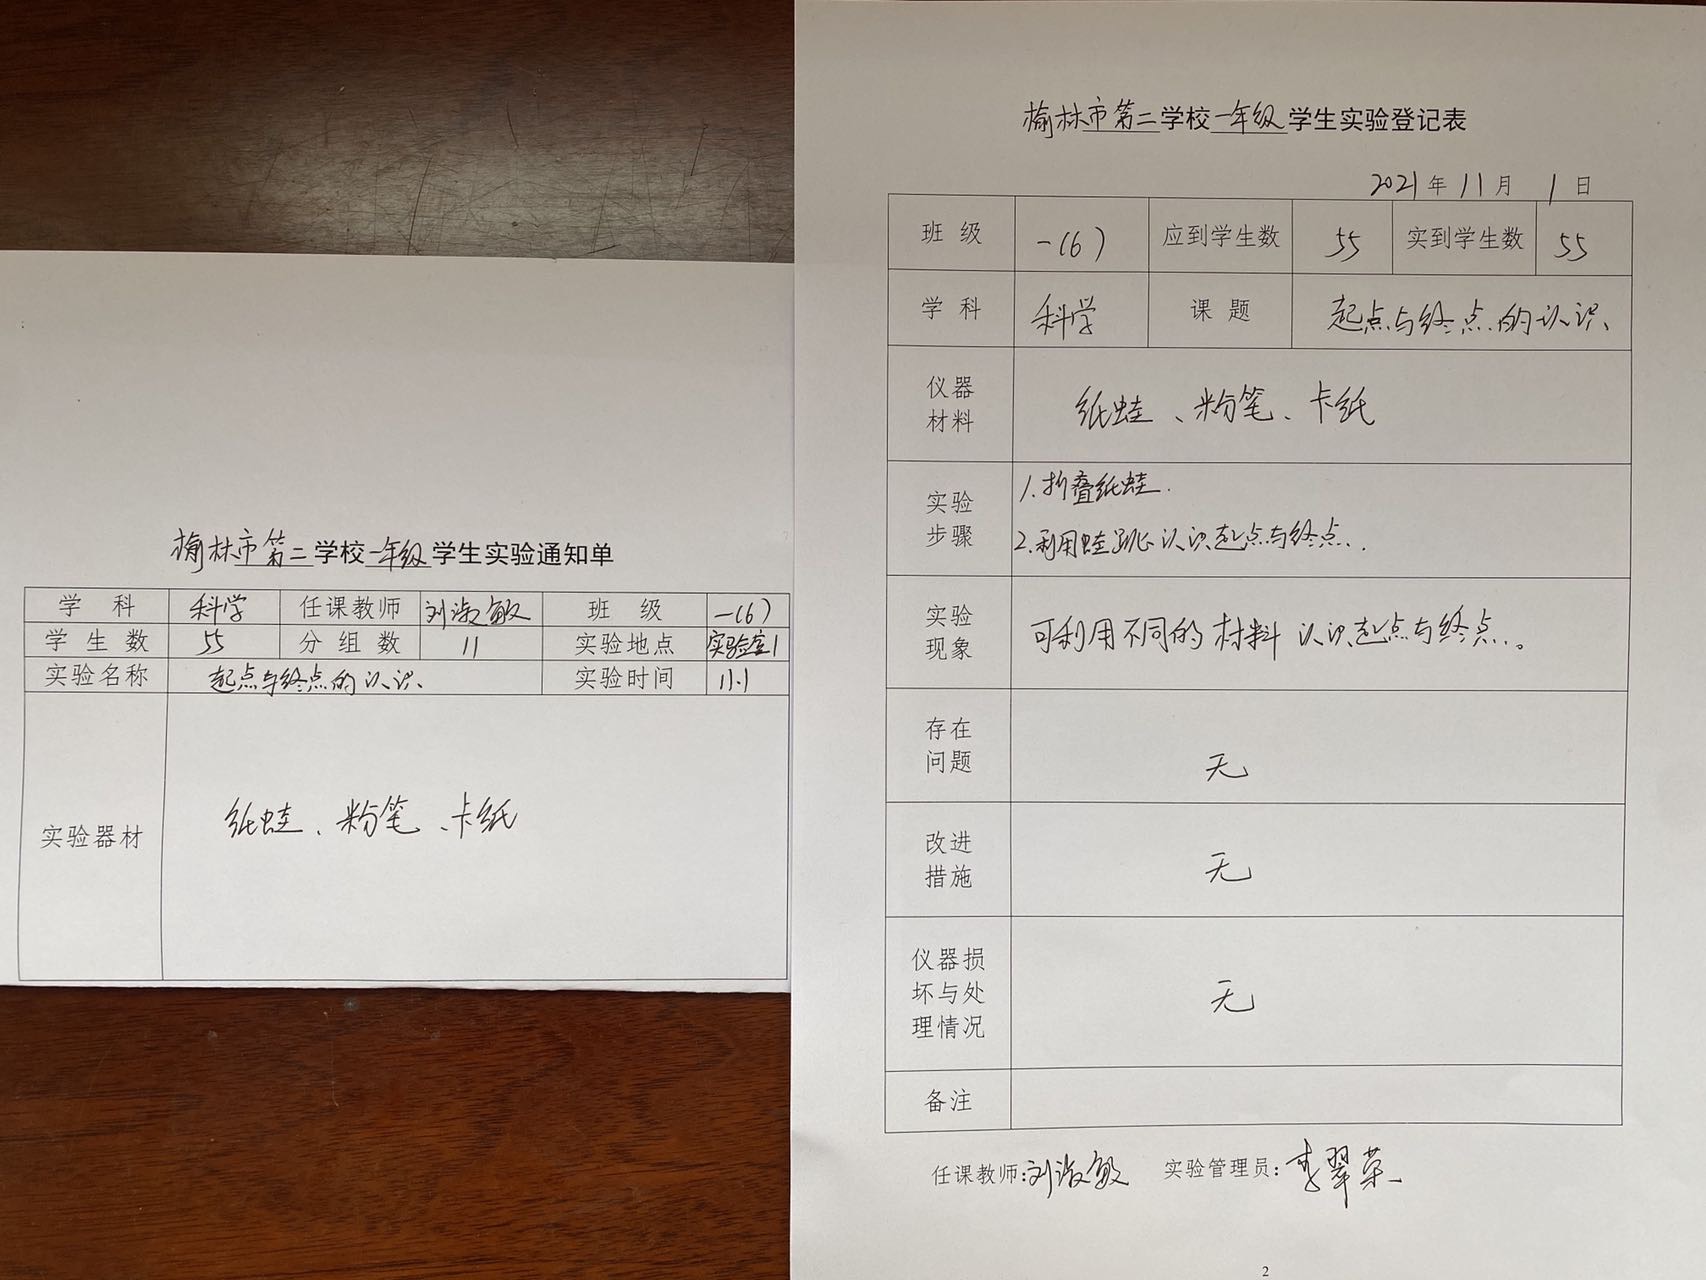 榆林市第二学校一年级学生实验通知单
学科 科学 任课教师 刘淑敏 班级 一(6)
学生数 55 分组数 11 实验地点 实验室1
实验名称 起点与终点的认识 实验时间 11.1
实验器材 纸蛙、粉笔、卡纸
榆林市第二学校一年级学生实验登记表
2021年11月1日
班级 一(6) 应到学生数 55 实到学生数 55
学科 科学 课题 起点与终点的认识
仪器
材料
纸蛙、粉笔、卡纸
实验
步骤
1.折叠纸蛙.
2.利用蛙跳认识起点与终点.
实验
现象
可利用不同的材料认识起点与终点。
存在
问题
无
改进
措施
无
仪器损
坏与处
理情况
无
备注
任课教师:刘淑敏 实验管理员:李翠荣
2